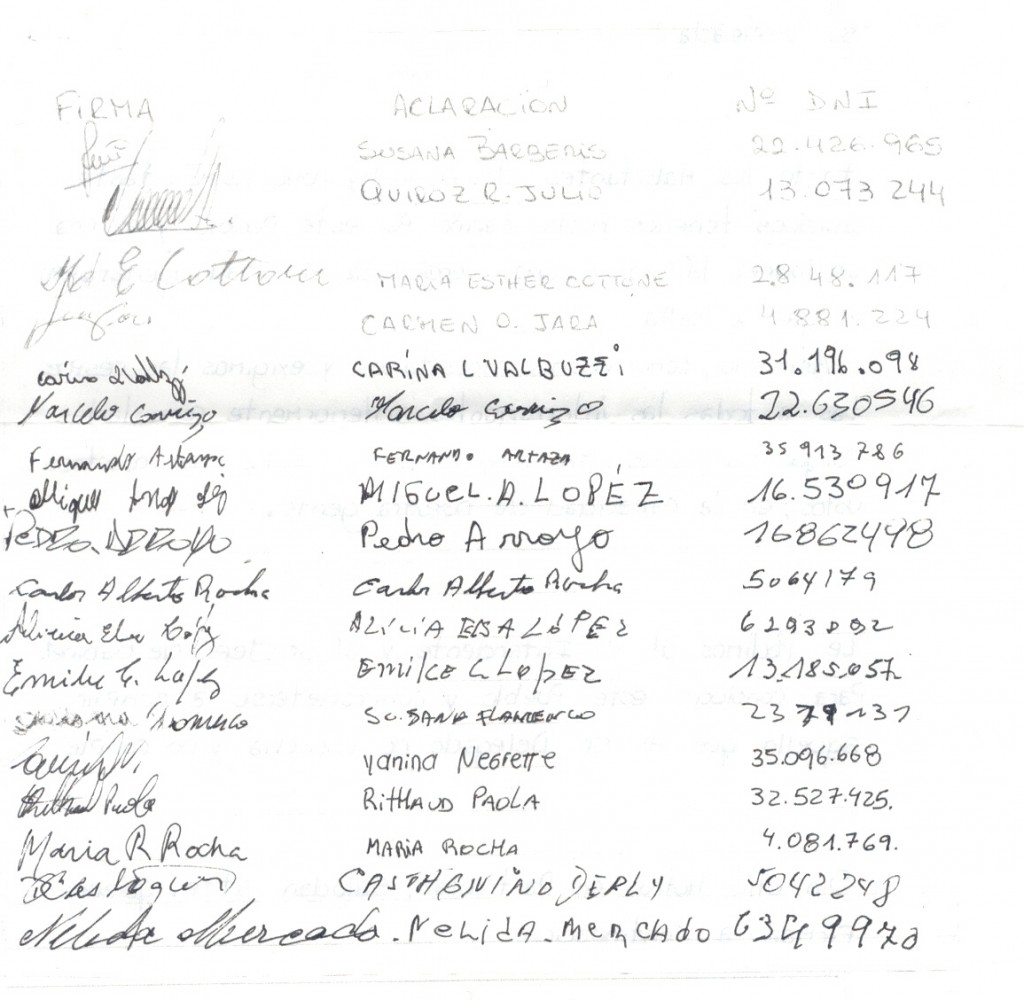 FIRMA ACLARACIÓN Nº DNI
SUSANA BARBERIS 22.426.965
QUIROZ R. JULIO 13.073 244
M E Cottone MARIA ESTHER COTTONE 2.8 48.117
CARMEN O. JARA 4.881.224
CARINA L VALBUZZI 31.196.098
Marcelo Marcelo 22.620546
Fernando FERNANDO ARTAZA 35 913 786
Miguel MIGUEL.A.LOPEZ 16.530917
PEDRO ARROYO Pedro Arroyo 16862498
Carlos Alberto Rocha Carlos Alberto Rocha 5064179
Alicia Elsa López ALICIA ELSA LÓPEZ
Emilce C. López EMILCE C LOPEZ 13.185.057
FLAMENCO
Yanina Negrette 35.096.668
Ritthaud Paola RITTHAUD PAOLA 32.527.425.
Maria R Rocha MARIA ROCHA 4.081.769.
5042248
Nelida Mercado. NELIDA.MERCADO